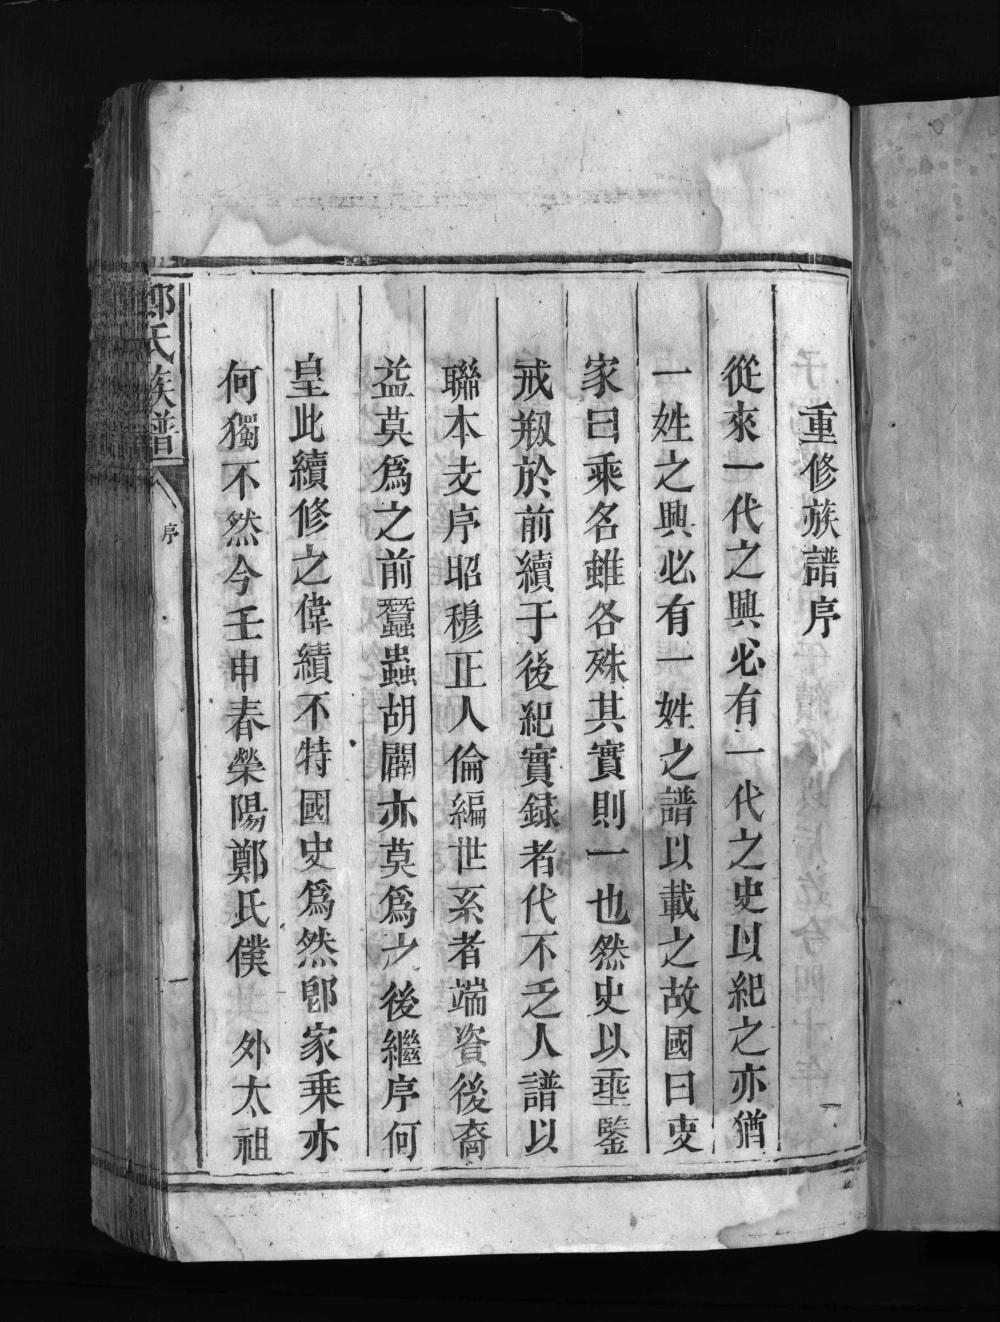 重修族譜序
從來一代之興必有一代之史以紀之亦猶
一姓之興必有一姓之譜以載之故國曰史
家曰乘名雖各殊其實則一也然史以垂鑒
戒剏於前續于後紀實錄者代不乏人譜以
聯本支序昭穆正人倫編世系者端資後裔
益莫爲之前蠶蟲胡闢亦莫爲之後繼序何
皇此續修之偉績不特國史爲然卽家乘亦
何獨不然今壬申春滎陽鄭氏僕 外太祖
鄭氏族譜
序
一